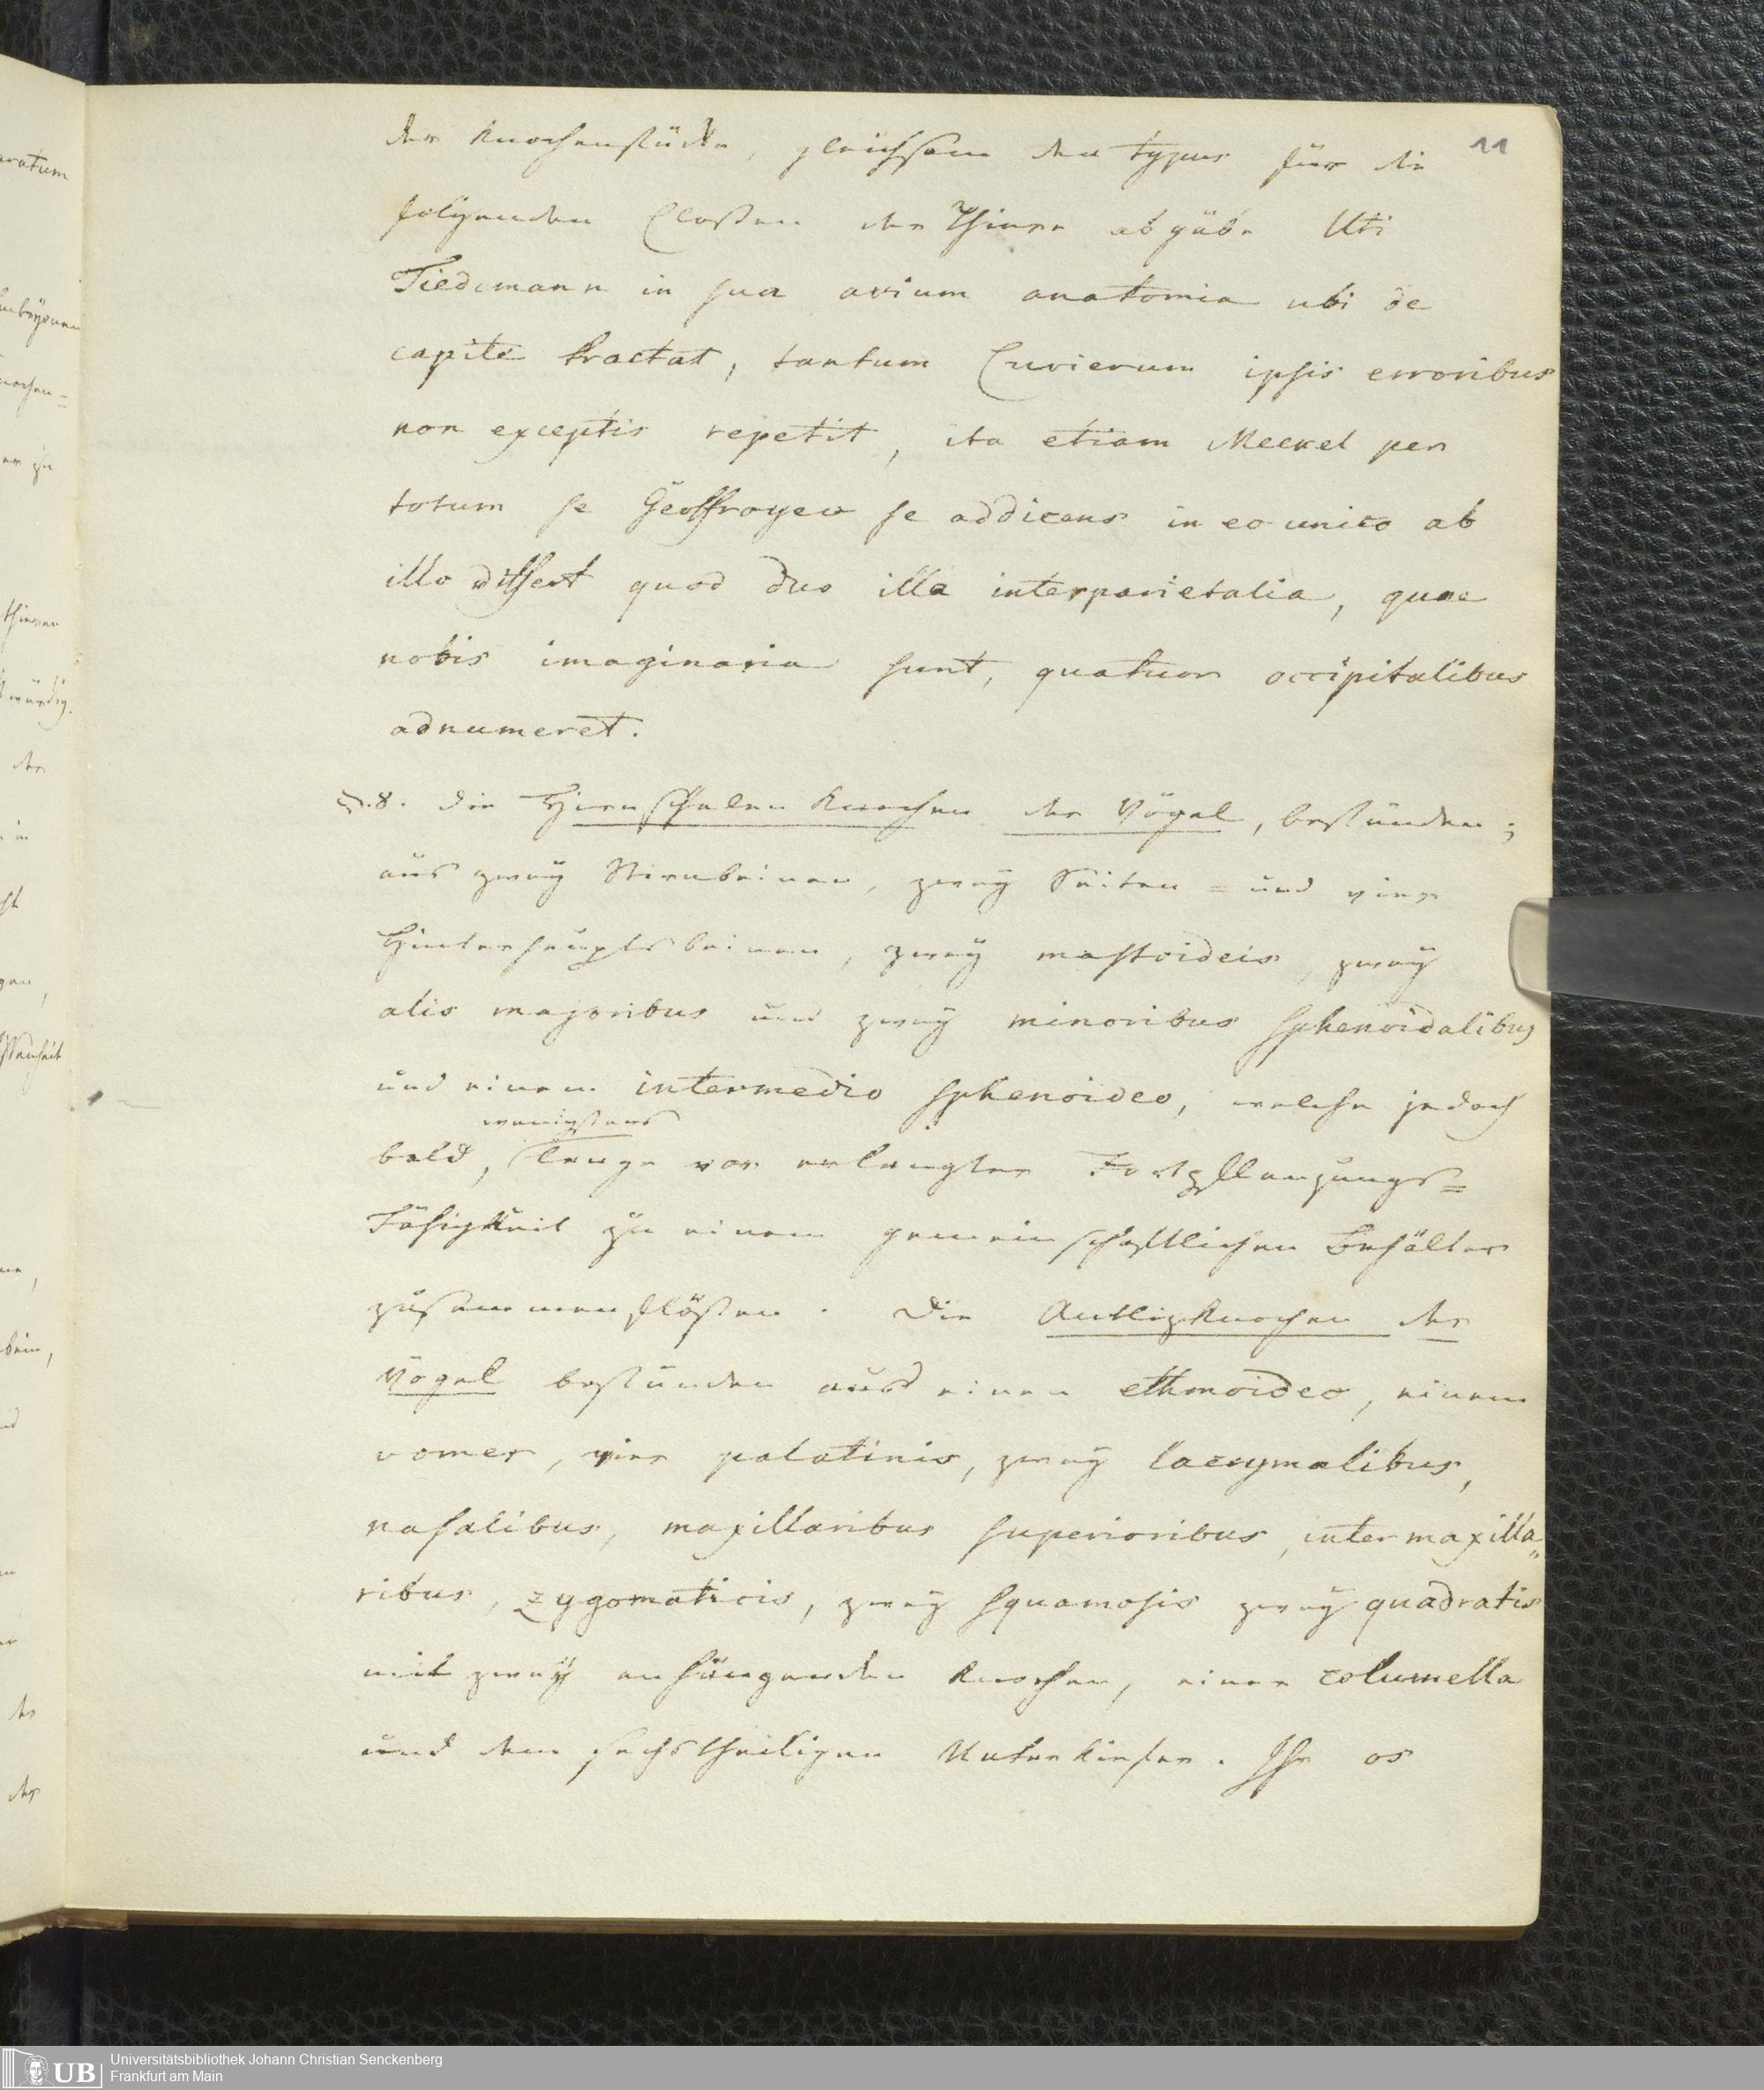 11
der Knochenstücke, gleichsam den typus für die
folgenden Classen der Thiere abgäbe Uti
Tiedemann in sua avium anatomia ubi de
capite tractat, tantum Cuvierum ipsis erroribus
non exceptis repetit, ita etiam Meckel per
totum se Geoffroyeo se addicens in eo unico ab
illo differt quod duo illa interparietalia, quae
nobis imaginaria sunt, quatuor occipitalibus
adnumeret.
§.8. Die Hirnschalen Knochen der Vögel, bestünden;
aus zweÿ Stirnbeinen, zweÿ Seiten = und vier
Hinterhauptsbeinen, zweÿ mastoideis, zweÿ
alis majoribus und zweÿ minoribus sphenoidalibus
und einem intermedio sphenoideo, welche jedoch
wenigstens
bald, lange vor erlangter Fortpflanzungs=
Fähigkeit zu einem gemeinschaftlichen Behälter
zusammenflößen. Die Antlizknochen der
Vögel bestünden aus einen ethmoideo, einem
vomer, vier palatinis, zweÿ lacrymalibus,
nasalibus, maxillaribus superioribus, intermaxilla„
ribus, zygomaticis, zweÿ squamosis zweÿ quadratis
mit zweÿ anhängenden Knochen, einer columella
und dem sechstheiligen Unterkiefer. Ihr os
aratum
der
in
gen,
bein,
der
der
Universitätsbibliothek Johann Christian Senckenberg
Frankfurt am Main
UB